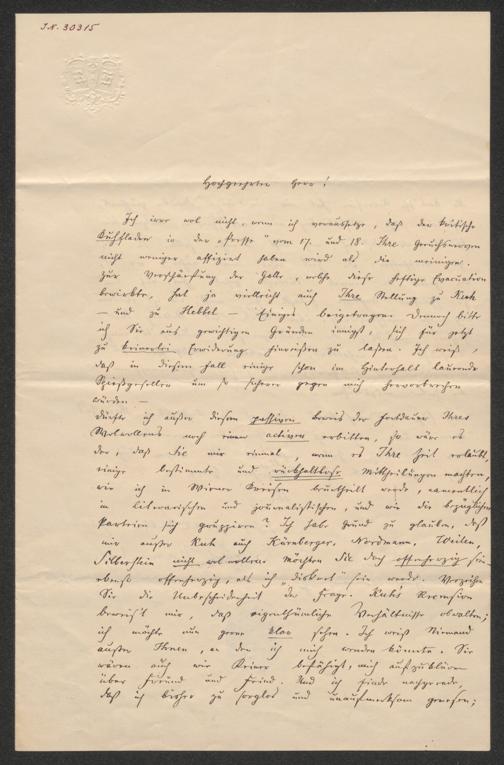 J.N. 30315
Hochgeehrter Herr!
Ich irre wol nicht, wenn ich voraussetze, daß der kritische
Kuhfladen in der „Presse" vom 17. und 18. Ihre Geruchsnerven
nicht weniger affizirt haben wird als die meinigen.
Zur Verschärfung der Galle, welche diese heftige Evacuation
bewirkte, hat ja vielleicht auch Ihre Stellung zu Kuh
– und zu Hebbel – Einiges beigetragen. Dennoch bitte
ich Sie aus gewichtigen Gründen innigst, sich für jetzt
zu keinerlei Erwiderung hinreißen zu lassen. Ich weiß,
daß in diesem Fall einige schon im Hinterhalt lauernde
Spießgesellen um so sicherer gegen mich hervorbrechen
würden –
Dürfte ich außer diesem passiven Beweis der Fortdauer Ihres
Wolwollens noch einen activen erbitten, so wäre es
der, daß Sie mir einmal, wenn es Ihre Zeit erlaubt,
einige bestimmte und rückhaltlose Mittheilungen machten,
wie ich in Wiener Kreisen beurtheilt werde, namentlich
in literarischen und journalistischen, und wie die bezüglichen
Parteien sich gruppiren? Ich habe Grund zu glauben, daß
mir außer Kuh auch Kürnberger, Nordmann, Weilen,
Silberstein nicht wolwollen. Möchten Sie doch offenherzig sein
ebenso offenherzig, als ich „diskret" sein werde. Verzeihen
Sie die Unbescheidenheit der Frage. Kuhs Recension
beweis't mir, daß eigenthümliche Verhältnisse obwalten;
ich möchte nun gerne klar sehen. Ich weiß Niemand
außer Ihnen, an den ich mich wenden könnte. Sie
wären auch wie Keiner befähigt, mich aufzuklären
über Freund und Feind. Und ich finde nachgerade,
daß ich bisher zu sorglos und unaufmerksam gewesen;